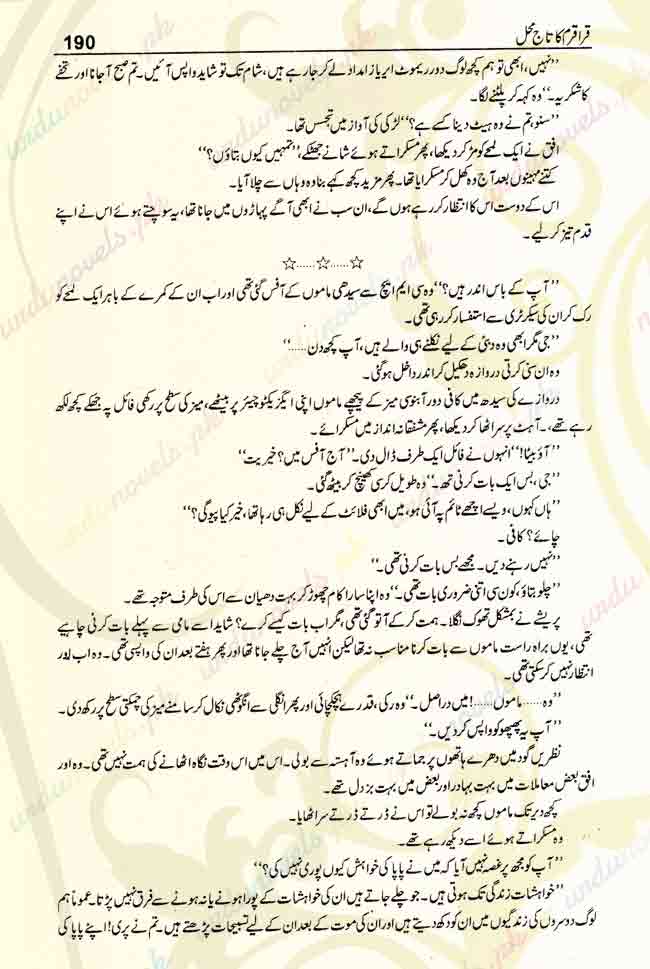 190
قراقرم کا تاج محل
”نہیں، ابھی تو ہم کچھ لوگ دور ریموٹ ایریاز امداد لے کر جا رہے ہیں، شام تک تو شاید واپس آئیں۔ تم صبح آ جانا اور تحفے
کا شکریہ۔“ وہ کہہ کر پلٹنے لگا۔
”سنو تم نے وہ ہیٹ دینا کسے ہے؟“ لڑکی کی آواز میں تجسس تھا۔
افق نے ایک لمحے کو مڑ کر دیکھا، پھر مسکراتے ہوئے شانے جھٹکے، ”تمہیں کیوں بتاؤں؟“
کتنے مہینوں بعد آج وہ کھل کر مسکرایا تھا۔ پھر مزید کچھ کہے بنا وہ وہاں سے چلا آیا۔
اس کے دوست اس کا انتظار کر رہے ہوں گے، ان سب نے ابھی آگے پہاڑوں میں جانا تھا، یہ سوچتے ہوئے اس نے اپنے
قدم تیز کر لیے۔
☆......☆......☆
”آپ کے باس اندر ہیں؟“ وہ سی ایم ایچ سے سیدھی ماموں کے آفس گئی تھی اور اب ان کے کمرے کے باہر ایک لمحے کو
رک کر ان کی سیکرٹری سے استفسار کر رہی تھی۔
”جی مگر ابھی وہ دبئی کے لیے نکلنے ہی والے ہیں، آپ کچھ دن......“
وہ ان سنی کرتی دروازہ دھکیل کر اندر داخل ہو گئی۔
دروازے کی سیدھ میں کافی دور آبنوسی میز کے پیچھے ماموں اپنی ایگزیکٹو چیئر پر بیٹھے، میز کی سطح پر رکھی فائل پہ جھکے کچھ لکھ
رہے تھے،۔ آہٹ پر سر اٹھا کر دیکھا، پھر مشفقانہ انداز میں مسکرائے۔
”آؤ بیٹا!“ انہوں نے فائل ایک طرف ڈال دی۔ ”آج آفس میں؟ خیریت“
”جی، بس ایک بات کرنی تھی۔“ وہ طویل کرسی کھینچ کر بیٹھ گئی۔
”ہاں کہوں، ویسے اچھے ٹائم پہ آئی ہو، میں ابھی فلائٹ کے لیے نکل ہی رہا تھا، خیر کیا پیو گی؟“
چائے؟ کافی۔
”نہیں رہنے دیں۔ مجھے بس بات کرنی تھی۔“
”چلو بتاؤ، کون سی اتنی ضروری بات تھی۔“ وہ اپنا سارا کام چھوڑ کر بہت دھیان سے اس کی طرف متوجہ تھے۔
پریشے نے بمشکل تھوک نگلا۔ ہمت کر کے آ تو گئی تھی، مگر اب بات کیسے کرے؟ شاید اسے مامی سے پہلے بات کرنی چاہیے
تھی، یوں براہ راست ماموں سے بات کرنا مناسب نہ تھا لیکن انہیں آج چلے جانا تھا اور پھر ہفتے بعد ان کی واپسی تھی۔ وہ اب اور
انتظار نہیں کر سکتی تھی۔
”وہ...... ماموں......! میں دراصل۔“ وہ رکی، قدرے ہچکچائی اور پھر انگلی سے انگوٹھی نکال کر سامنے میز کی چمکتی سطح پر رکھ دی۔
”آپ یہ پھپھو کو واپس کر دیں۔“
نظریں گود میں دھرے ہاتھوں پر جماتے ہوئے وہ آہستہ سے بولی۔ اس میں اس وقت نگاہ اٹھانے کی ہمت نہیں تھی۔ وہ اور
افق بعض معاملات میں بہت بہادر اور بعض میں بہت بزدل تھے۔
کچھ دیر تک ماموں کچھ نہ بولے تو اس نے ڈرتے ڈرتے سر اٹھایا۔
وہ مسکراتے ہوئے اسے دیکھ رہے تھے۔
”آپ کو مجھ پر غصہ نہیں آیا کہ میں نے پاپا کی خواہش کیوں پوری نہیں کی؟“
”خواہشات زندگی تک ہوتی ہیں۔ جو چلے جاتے ہیں ان کی خواہشات کے پورا ہونے یا نہ ہونے سے فرق نہیں پڑتا۔ عموماً ہم
لوگ دوسروں کی زندگیوں میں ان کو دکھ دیتے ہیں اور ان کی موت کے بعد ان کے لیے تسبیحات پڑھتے ہیں۔ تم نے پری! اپنے پاپا کی